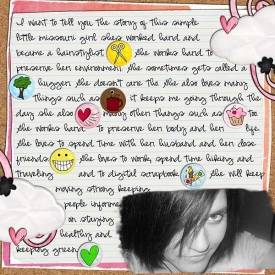 I want to tell you the story of this simple
little missouri girl. she's worked hard and
became a hairstylist. she works hard to
preserve her environment. she sometimes gets called a
hugger. she doesn't care. she also loves many
things such as it keeps me going through the
day. she also many other things such as too.
she works hard to preserve her body and her life.
she loves to spend time with her husband and her close
friends. she loves to work, spend time hiking and
traveling and to digital scrapbook. she will keep
moving strong keeping
people informed
on staying
healthy and
keeping green.